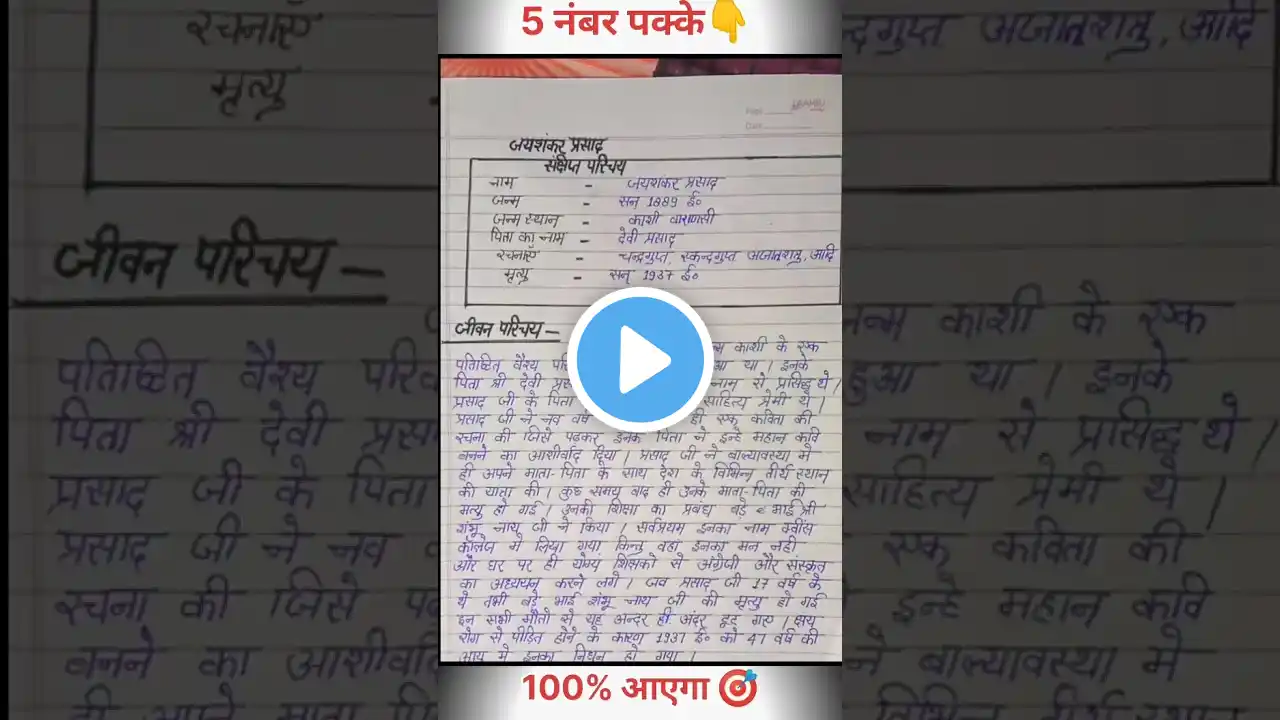 5 नंबर पक्के👇
जयशंकर प्रसाद
संक्षिप्त परिचय
नाम - जयशंकर प्रसाद
जन्म - सन् 1889 ई०
जन्म स्थान - काशी वाराणसी
पिता का नाम - देवी प्रसाद
रचनाएँ - चन्द्रगुप्त, स्कन्दगुप्त अजातशत्रु, आदि
मृत्यु - सन् 1937 ई०
जीवन परिचय -
काशी के एक
पतिष्ठित वैश्य हुआ था। इनके
पिता श्री देवी नाम से प्रसिद्ध थे।
प्रसाद जी के पिता साहित्य प्रेमी थे।
प्रसाद जी ने नव वर्ष ही एक कविता की
रचना की जिसे पढकर इनके पिता ने इन्हे महान कवि
बनने का आशीर्वाद दिया। प्रसाद जी ने बाल्यावस्था मे
ही अपने माता-पिता के साथ देश के विभिन्न तीर्थ स्थान
की यात्रा की। कुछ समय बाद ही उनके माता-पिता की
मृत्यु हो गई। उनकी शिक्षा का प्रबंध बडे भाई श्री
शंभू नाथ जी ने किया। सर्वप्रथम इनका नाम क्वींस
कॉलेज मे लिया गया किन्तु वहां इनका मन नही
और घर पर ही योग्य शिक्षको से अंग्रेजी और संस्कृत
का अध्ययन करने लगे। जब प्रसाद जी 17 वर्ष के
थे तभी बडे भाई शंभू नाथ जी की मृत्यु हो गई
इन सभी मौतो से यह अन्दर ही अंदर टूट गए। क्षय
रोग से पीडित होने के कारण 1937 ई० को 47 वर्ष की
आयु मे इनका निधन हो गया।
100% आएगा 🎯